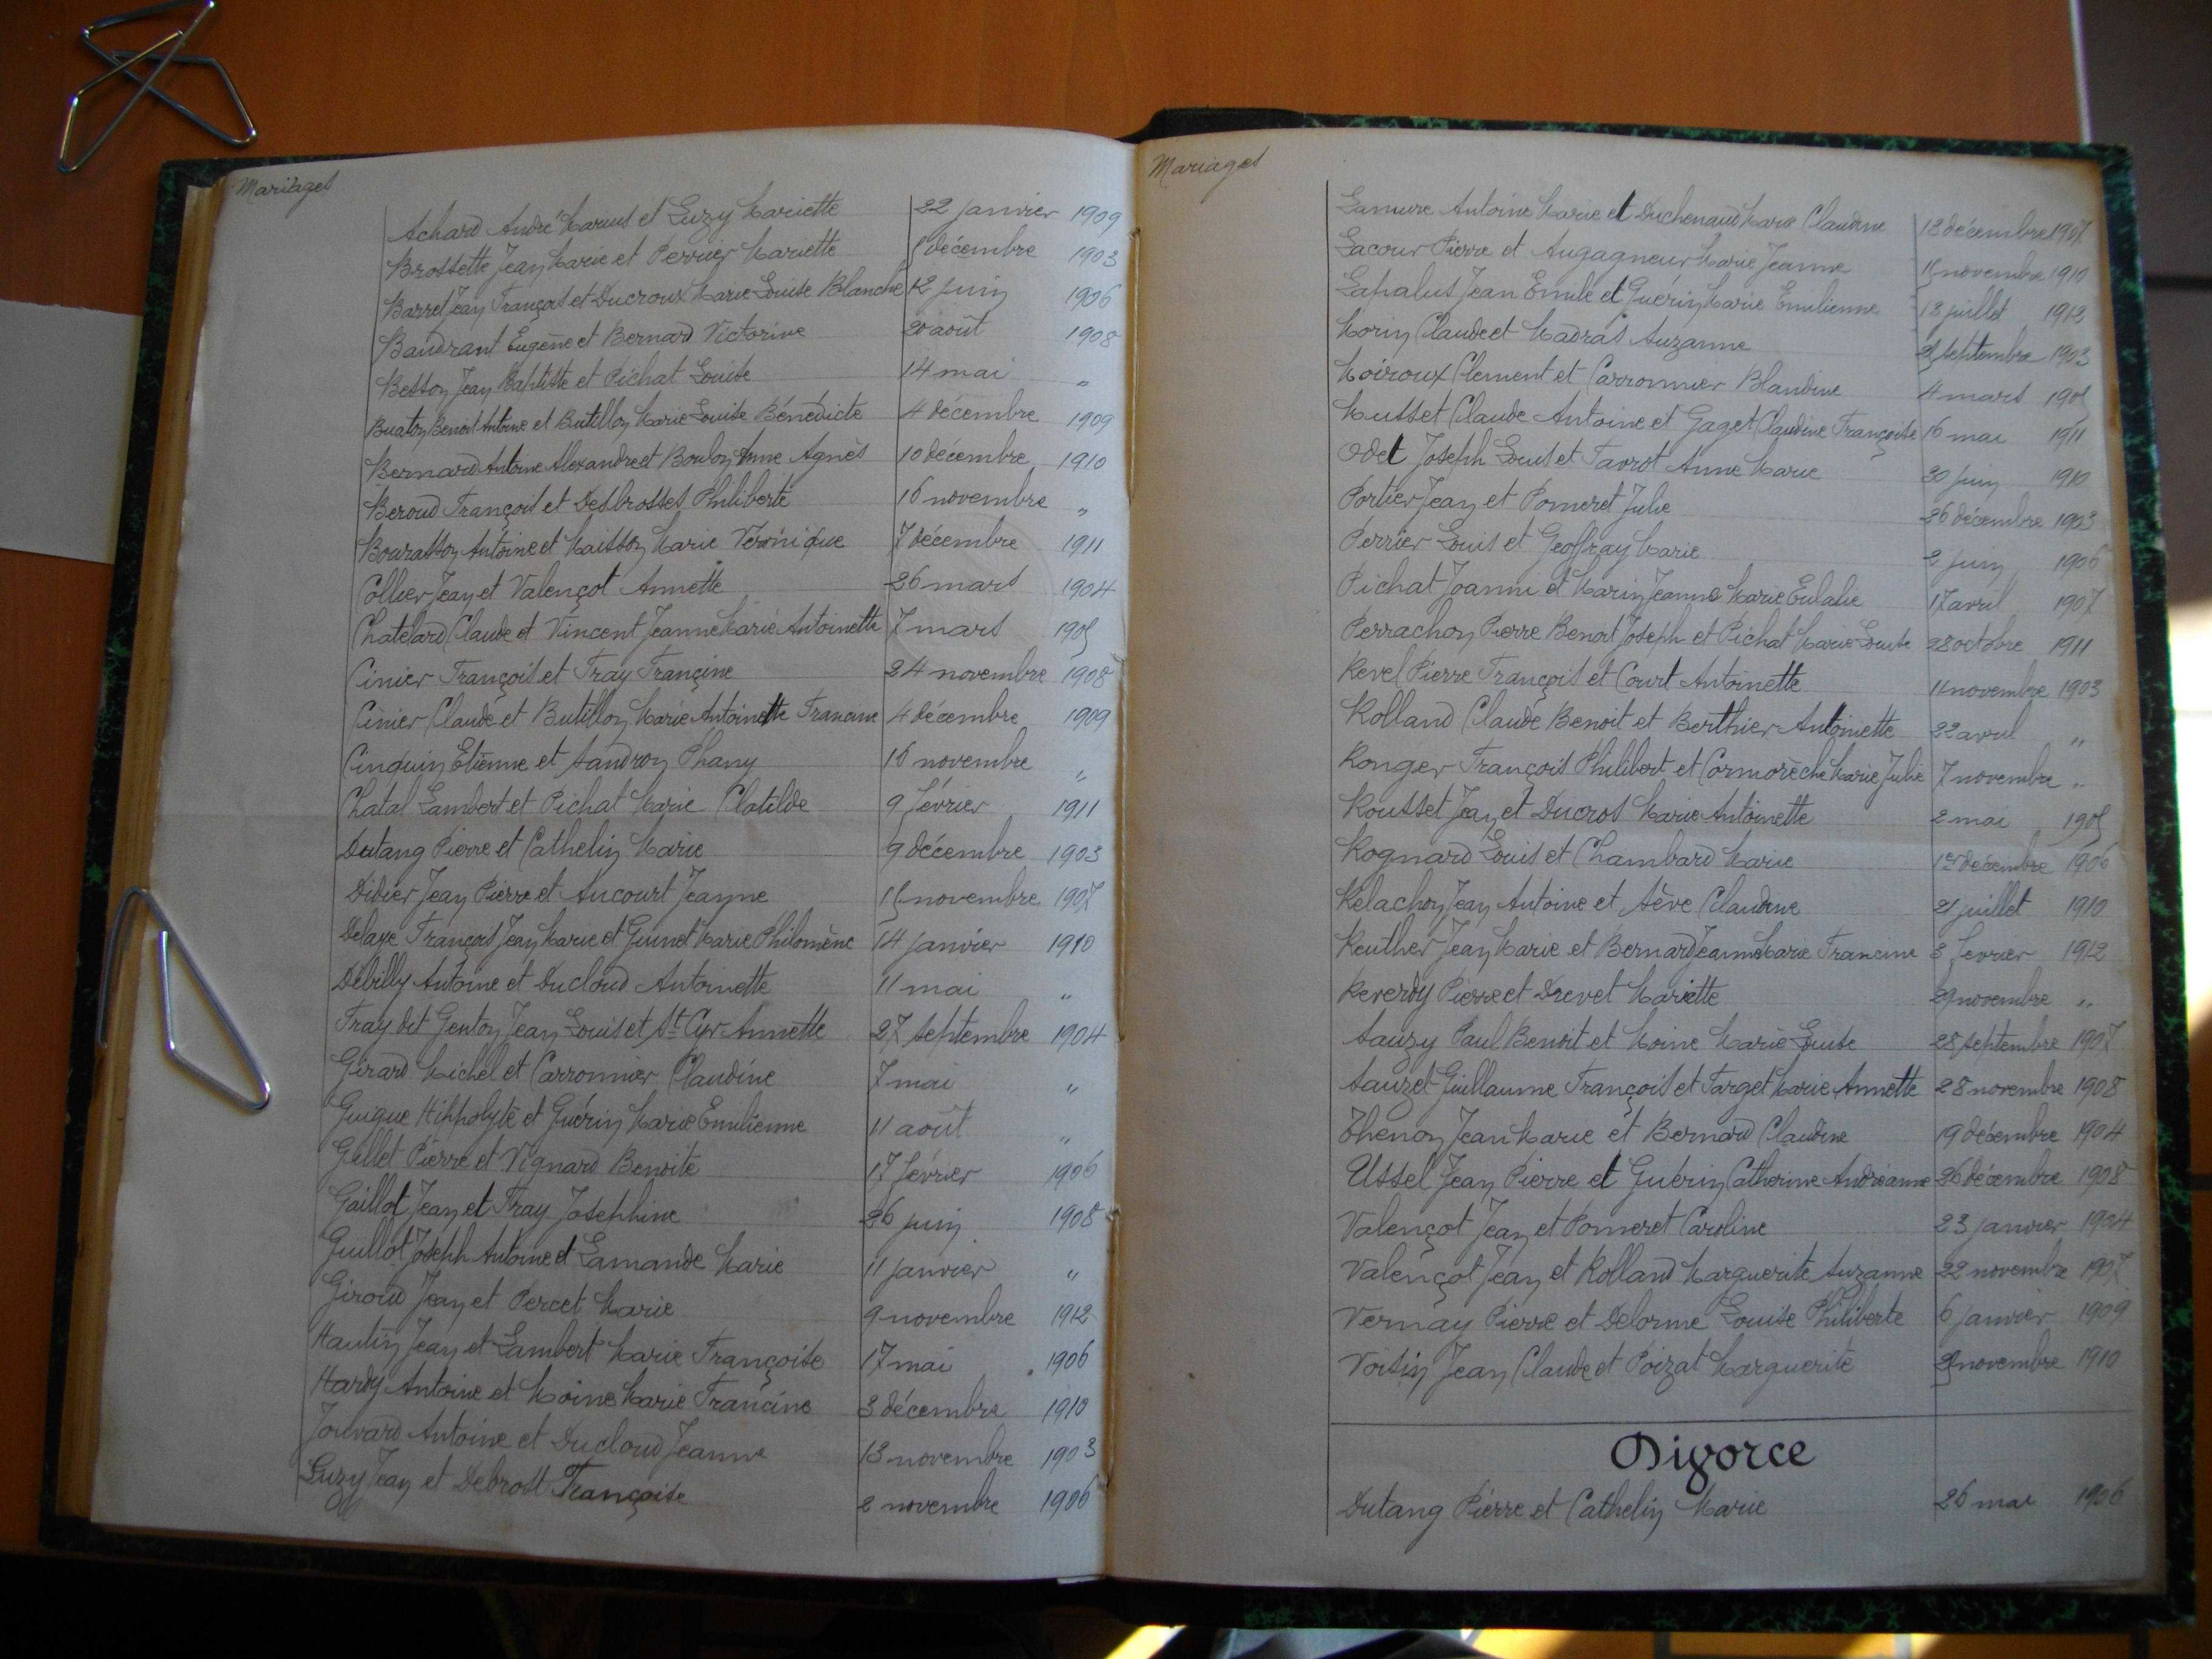 Mariages
Achard André Marius et Luzy Mariette 22 janvier 1909
Brossette Jean Marie et Perrier Mariette 5 décembre 1903
Barret Jean François et Ducroux Marie Louise Blanche 12 juin 1906
Baudrant Eugène et Bernard Victorine 20 août 1908
Besson Jean Baptiste et Pichat Louise 14 mai "
Buaton Benoit Antoine et Butillon Marie Louise Bénédicte 4 décembre 1909
Bernard Antoine Alexandre et Boulon Anne Agnès 10 décembre 1910
Beroud François et Desbrosses Philiberte 16 novembre "
Bourasson Antoine et Maisson Marie Veronique 7 décembre 1911
Collier Jean et Valençot Annette 26 mars 1904
Chatelard Claude et Vincent Jeanne Marie Antoinette 7 mars 1905
Cinier François et Fray Françine 24 novembre 1908
Cinier Claude et Butillon Marie Antoinette Francine 4 décembre 1909
Cinquin Etienne et Sandron Phany 16 novembre "
Chatal Lambert et Pichat Marie Clotilde 9 février 1911
Dutang Pierre et Cathelin Marie 9 décembre 1903
Didier Jean Pierre et Aucourt Jeanne 15 novembre 1907
Delaye François Jean Marie et Guinet Marie Philomène 14 janvier 1910
Debilly Antoine et Ducloud Antoinette 11 mai "
Fray dit Genton Jean Louis et St Cyr Annette 27 septembre 1904
Girard Michel et Carronnier Claudine 7 mai "
Guigue Hippolyte et Guérin Marie Emilienne 11 août "
Gillet Pierre et Vignard Benoite 17 février 1906
Gaillot Jean et Fray Josephine 26 juin 1908
Guillot Joseph Antoine et Lamande Marie 11 janvier "
Giroud Jean et Percet Marie 9 novembre 1912
Hautin Jean et Lambert Marie Françoise 17 mai 1906
Hardy Antoine et Moine Marie Francine 3 décembre 1910
Jouvard Antoine et Ducloud Jeanne 13 novembre 1903
Luzy Jean et Debrost Françoise 2 novembre 1906
Mariages
Lamure Antoine Marie et Duchenaud Marie Claudine 18 décembre 1907
Lacour Pierre et Augagneur Marie Jeanne 15 novembre 1910
Lapalus Jean Emile et Guérin Marie Emilienne 13 juillet 1912
Morin Claude et Madras Suzanne septembre 1903
Moiroux Clement et Carronnier Blandine 4 mars 1905
Musset Claude Antoine et Gaget Claudine Françoise 16 mai 1911
Odet Joseph Louis et Favrot Anne Marie 30 juin 1910
Portier Jean et Pomeret Julie 26 décembre 1903
Perrier Louis et Geoffray Marie 2 juin 1906
Pichat Joanni et Marin Jeanne Marie Eulalie 17 avril 1907
Perrachon Pierre Benoit Joseph et Pichat Marie Louise 28 octobre 1911
Revel Pierre François et Court Antoinette 11 novembre 1903
Rolland Claude Benoit et Berthier Antoinette 22 avril "
Ronger François Philibert et Cormorèche Marie Julie 7 novembre "
Rousset Jean et Ducros Marie Antoinette 2 mai 1905
Rognard Louis et Chambard Marie 1er décembre 1906
Relachon Jean Antoine et Sève Claudine 21 juillet 1910
Reuther Jean Marie et Bernard Jeanne Marie Francine 3 février 1912
Reverdy Pierre et Drevet Mariette 29 novembre "
Sauzy Paul Benoit et Moine Marie Louise 28 septembre 1907
Sauzet Guillaume François et Farget Marie Annette 28 novembre 1908
Thenon Jean Marie et Bernard Claudine 19 décembre 1904
Ussel Jean Pierre et Guérin Catherine Andréanne 26 décembre 1908
Valençot Jean et Pomeret Caroline 23 janvier 1904
Valençot Jean et Rolland Marguerite Suzanne 22 novembre 1907
Vernay Pierre et Delorme Louise Philiberte 6 janvier 1909
Voisin Jean Claude et Poizat Marguerite novembre 1910
Divorce
Dutang Pierre et Cathelin Marie 26 mai 1906